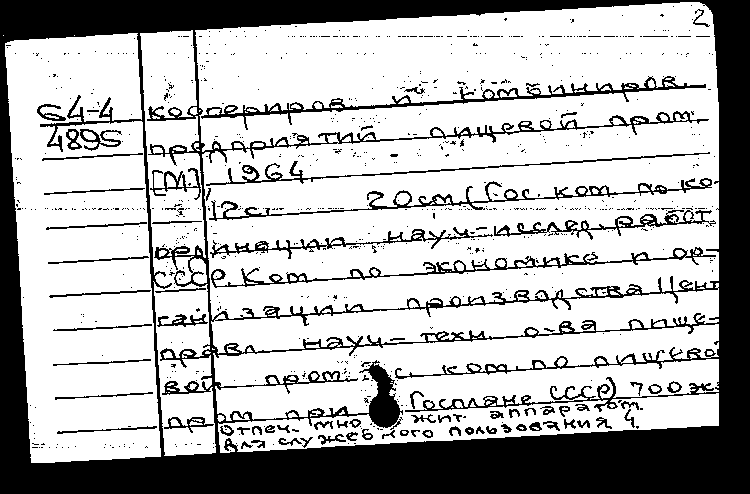 2
64-4 коопериров. и комбиниров.
4895 предприятий пищевой пром.
[М.], 1964.
12с. 20см. (Гос. ком. по ко-
ординации науч-исслед. работ
СССР. Ком. по экономике и ор-
ганизации производства Цент
правл. науч-техн. о-ва пище-
вой пром. с. ком. по пищевой
пром при Госплане СССР) 700 эк
Отпеч. мно жит. аппаратом.
Для служебного пользования